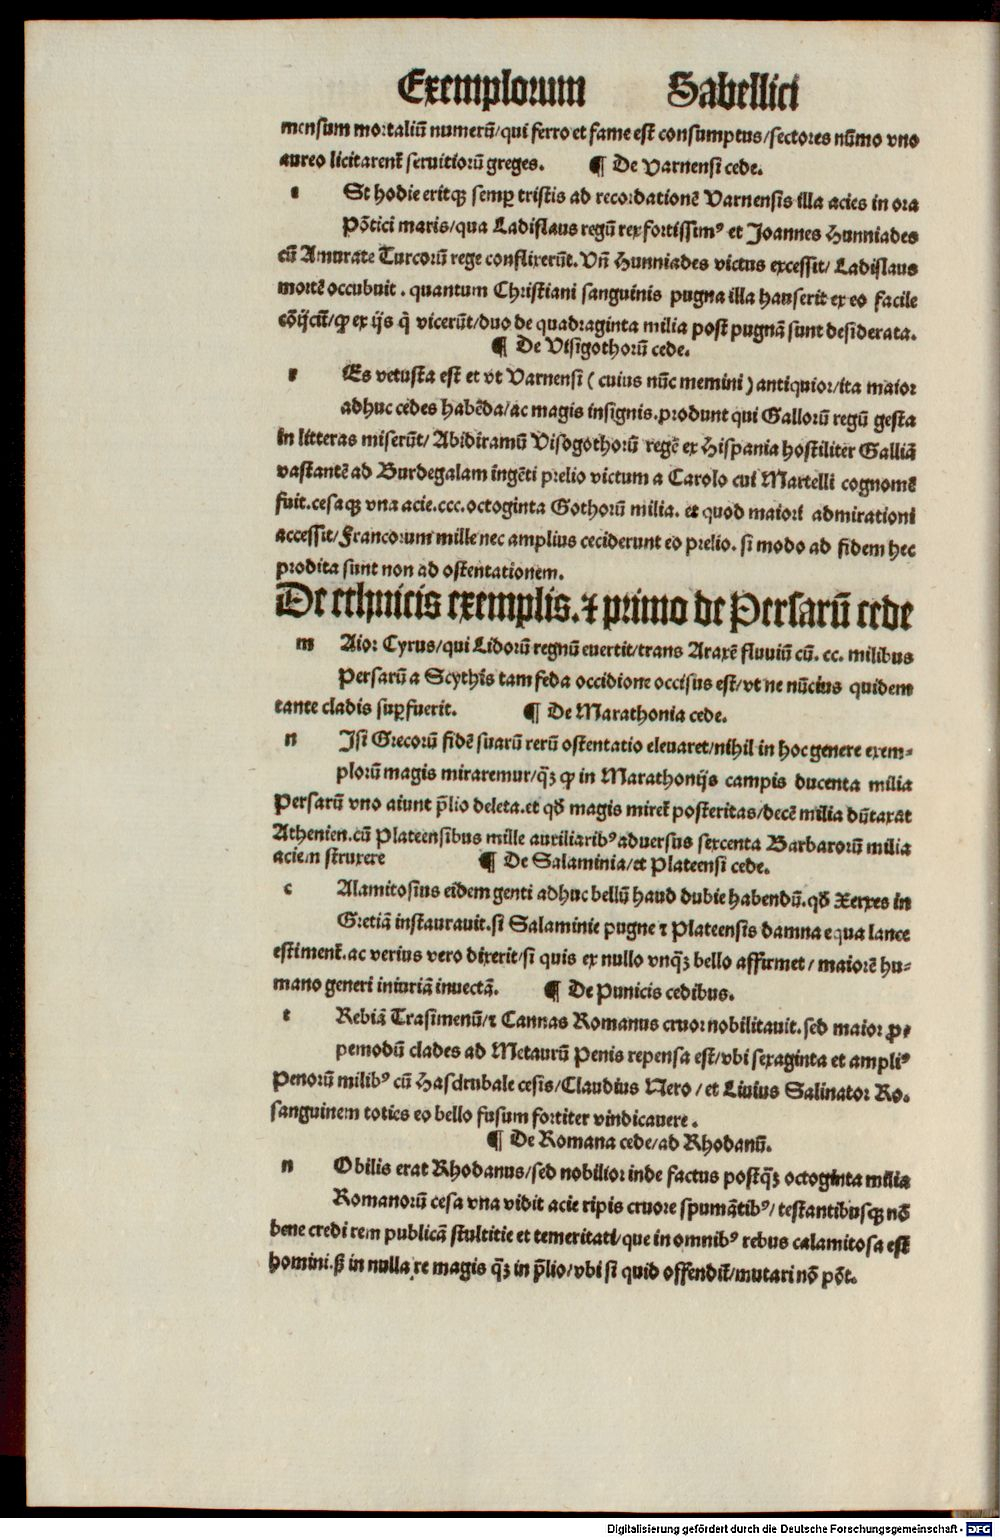 Exemplorum Sabellici
mensum mortaliū numerū/qui ferro et fame est consumptus/sectores nūmo vno
aureo licitarent̄ seruitiorū greges. ¶ De Varnensi cede.
e St hodie eritqꝫ semꝑ tristis ad recordationē Varnensis illa acies in ora
Pōtici maris/qua Ladislaus regū rex fortissimꝰ et Joannes Hunniades
cū Amurate Turcorū rege conflixerūt. Vn̄ Hunniades victus excessit/ Ladislaus
mortē occubuit . quantum Christiani sanguinis pugna illa hauserit ex eo facile
cōijcit̄/ꝙ ex ijs q̄ vicerūt/duo de quadraginta milia post pugnā sunt desiderata.
¶ De Visigothorū cede.
r Es vetusta est et vt Varnensi ( cuius nūc memini ) antiquior/ita maior
adhuc cedes habēda/ac magis insignis.produnt qui Gallorū regū gesta
in litteras miserūt/ Abidiramū Visogothorū regē ex Hispania hostiliter Galliā
vastantē ad Burdegalam ingēti prelio victum a Carolo cui Martelli cognomē
fuit.cesaqꝫ vna acie.ccc.octoginta Gothorū milia. et quod maiori admirationi
accessit/Francorum mille nec amplius ceciderunt eo prelio. si modo ad fidem hec
prodita sunt non ad ostentationem.
De ethnicis exemplis. ⁊ primo de Persarū cede
m Aior Cyrus/qui Lidorū regnū euertit/trans Araxē fluuiū cū. cc. milibus
Persarū a Scythis tam feda occidione occisus est/vt ne nūcius quidem
tante cladis suꝑfuerit. ¶ De Marathonia cede.
n Isi Grecorū fidē suarū rerū ostentatio eleuaret/nihil in hoc genere exem-
plorū magis miraremur/qꝫ̄ ꝙ in Marathonijs campis ducenta milia
Persarū vno aiunt p̄lio deleta.et qđ magis miret̄ posteritas/decē milia dūtaxat
Athenien.cū Plateensibus mille auxiliaribꝰ aduersus sexcenta Barbarorū milia
aciem struxere ¶ De Salaminia/et Plateensi cede.
c Alamitosius eidem genti adhuc bellū haud dubie habendū.qđ Xerxes in
Gretiā instaurauit.si Salaminie pugne ⁊ Plateensis damna equa lance
estiment̄.ac verius vero dixerit/si quis ex nullo vnqꝫ̄ bello affirmet / maiorē hu-
mano generi iniuriā inuectā. ¶ De Punicis cedibus.
t Rebiā Trasimenū/⁊ Cannas Romanus cruor nobilitauit.sed maior ꝓpe
pemodū clades ad Metaurū Penis repensa est/vbi sexaginta et ampliꝰ
Penorū milibꝰ cū Hasdrubale cesis/Claudius Nero / et Liuius Salinator Ro.
sanguinem toties eo bello fusum fortiter vindicauere .
¶ De Romana cede/ad Rhodanū.
n Obilis erat Rhodanus/sed nobilior inde factus postqꝫ̄ octoginta milia
Romanorū cesa vna vidit acie ripis cruore spumātibꝰ/ testantibusqꝫ nō
bene credi rem publicā stultitie et temeritati/que in omnibꝰ rebus calamitosa est
homini.ꝭ in nulla re magis qꝫ̄ in p̄lio/vbi si quid offendit̄/mutari nō pōt.
Digitalisierung gefördert durch die Deutsche Forschungsgemeinschaft - DFG